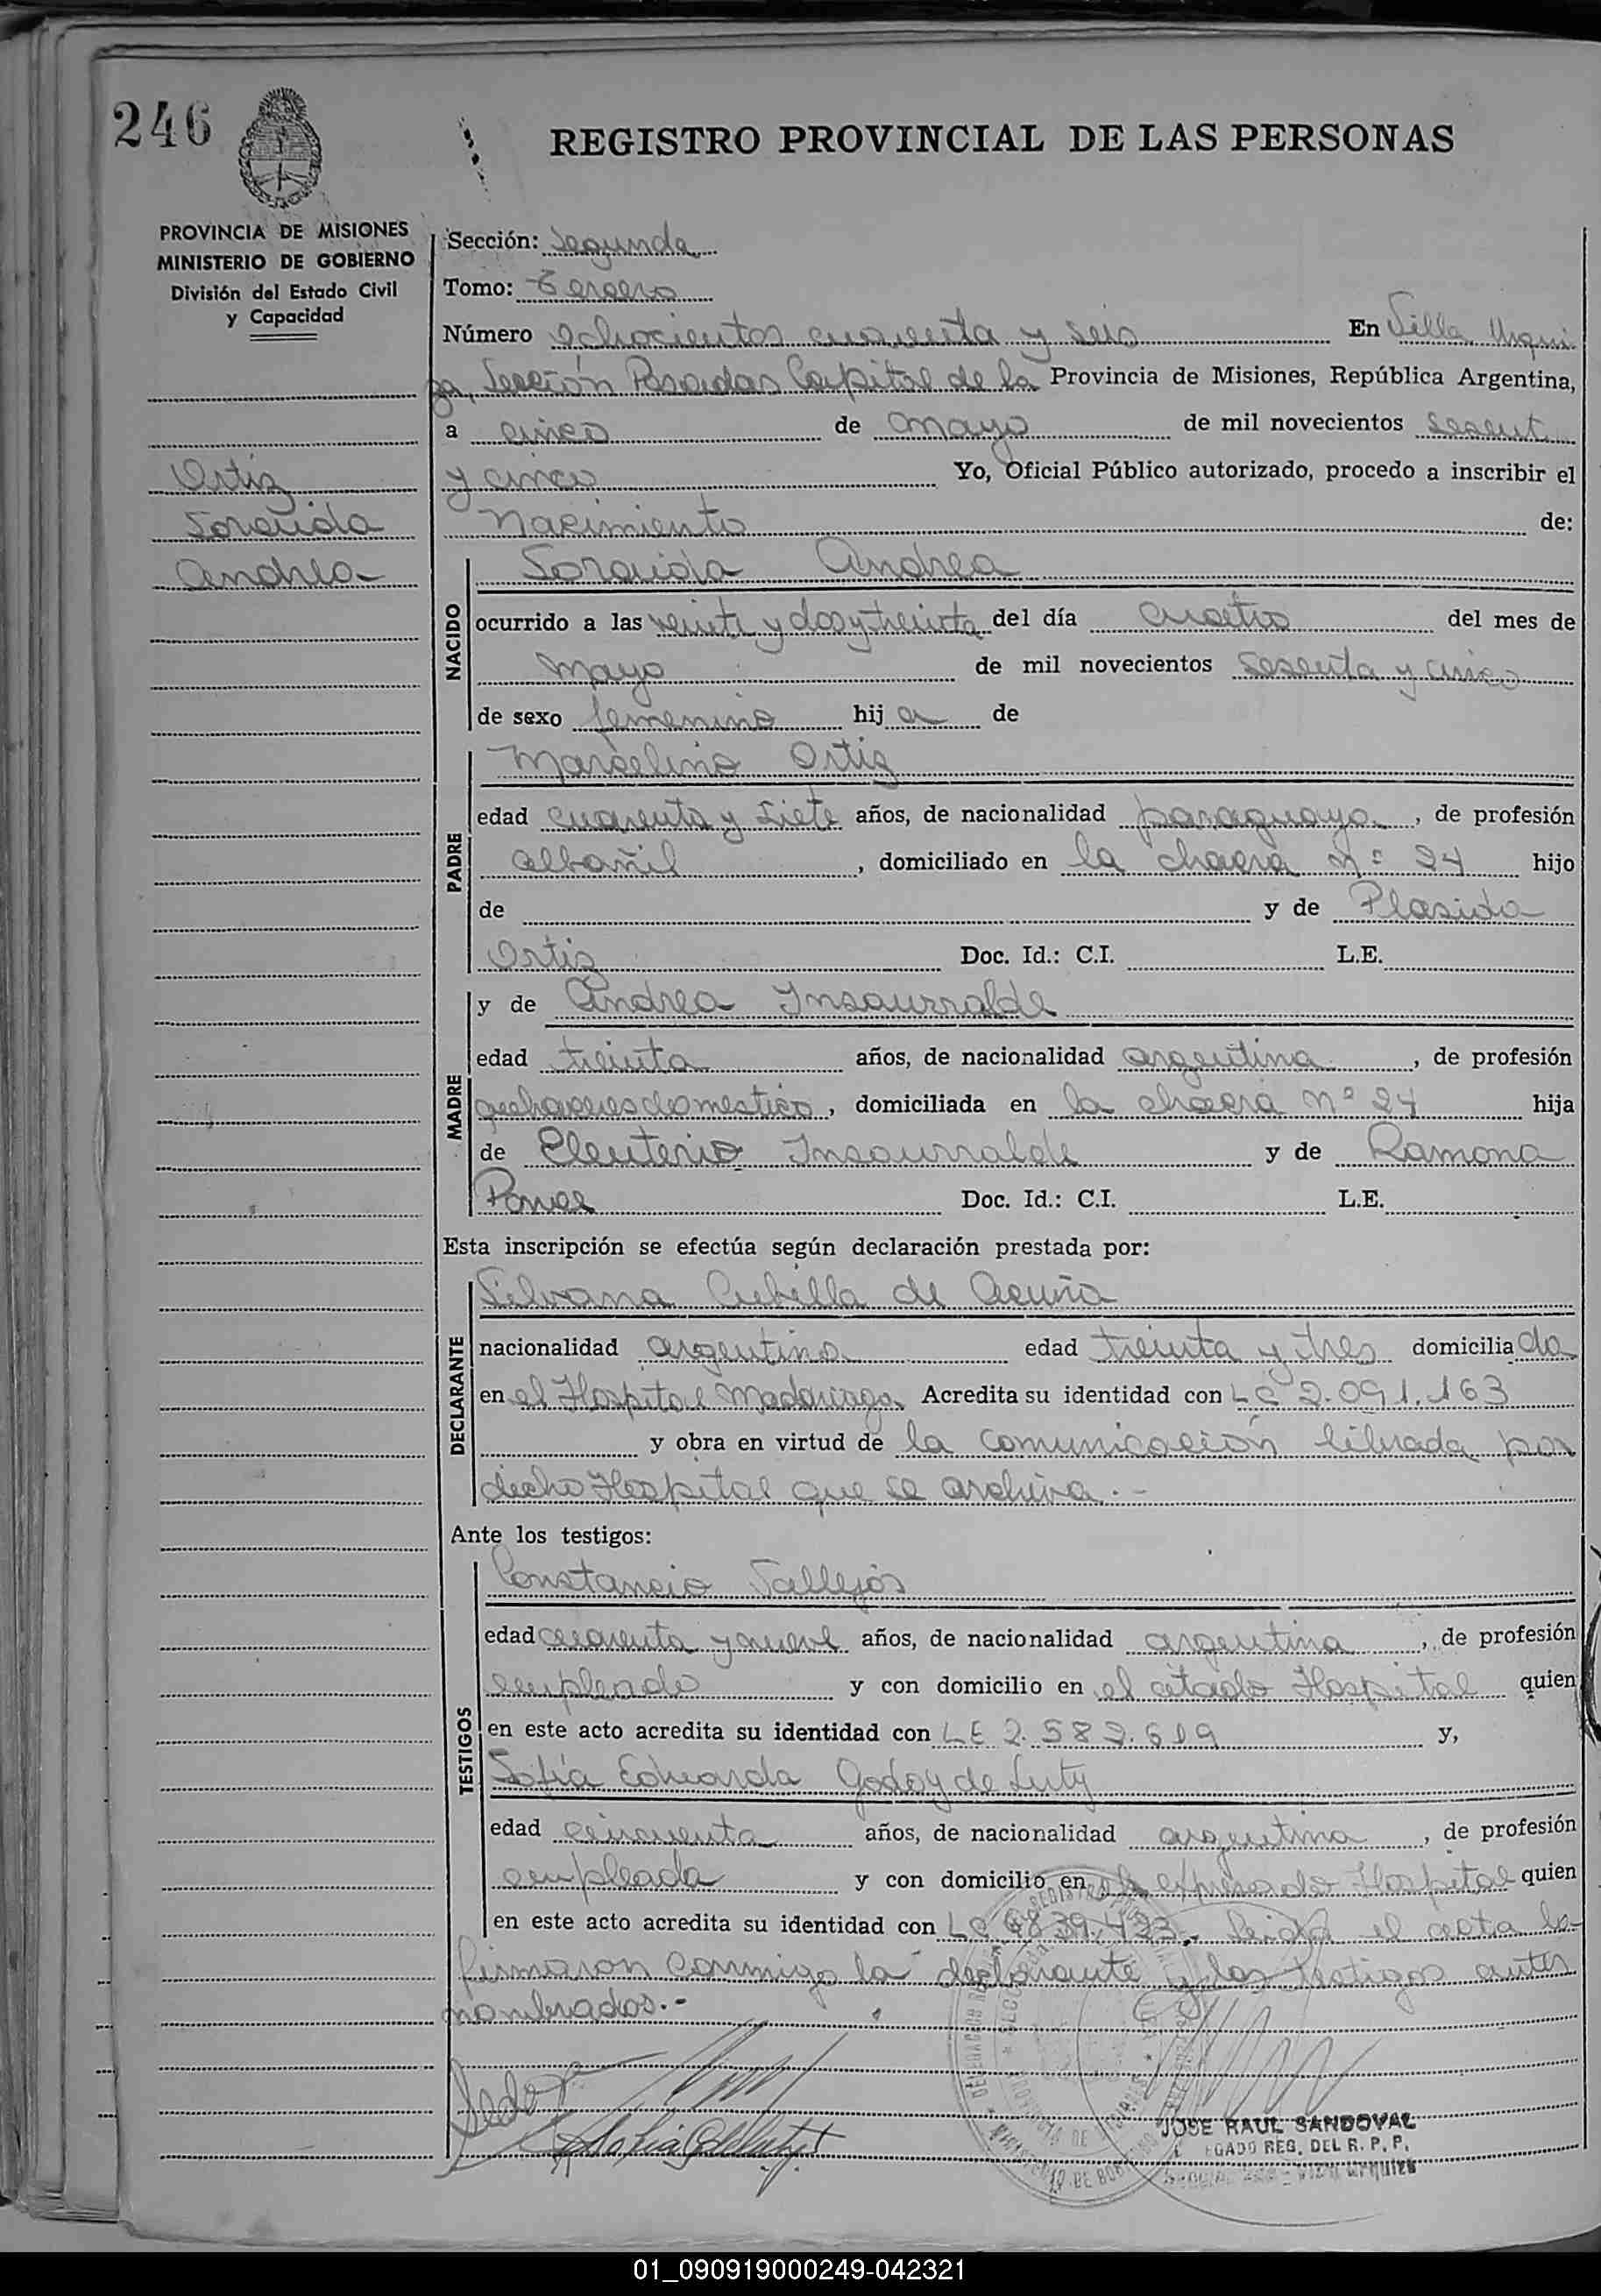 246
REGISTRO PROVINCIAL DE LAS PERSONAS
PROVINCIA DE MISIONES
MINISTERIO DE GOBIERNO
División del Estado Civil
y Capacidad
Ortiz
Andrea
Sección: Segunda
Tomo: Tercero
Número ochocientos cuarenta y seis En Villa Urqui
za, Sección Posadas Capital de la Provincia de Misiones, República Argentina,
a cinco de mayo de mil novecientos sesent
y cinco Yo, Oficial Público autorizado, procedo a inscribir el
Nacimiento de:
NACIDO
Andrea
ocurrido a las veinte y dos y treinta del día cuatro del mes de
mayo de mil novecientos sesenta y cinco
de sexo femenino hija de
PADRE
Marcelino Ortiz
edad cuarenta y siete años, de nacionalidad paraguaya, de profesión
albañil, domiciliado en la chacra nº 24 hijo
de y de Plasida
Ortiz Doc. Id.: C.I. L.E.
MADRE
y de Andrea Insaurralde
edad treinta años, de nacionalidad argentina, de profesión
quehaceres domestico, domiciliada en la chacra nº 24 hija
de Eleuterio Insaurralde y de Ramona
Doc. Id.: C.I. L.E.
Esta inscripción se efectúa según declaración prestada por:
DECLARANTE
Silvana Cubilla de Acuña
nacionalidad argentina edad treinta y tres domiciliada
en el Hospital Madariaga Acredita su identidad con LC 2.091.163
y obra en virtud de la comunicación librada por
dicho Hospital que se archiva.-
Ante los testigos:
TESTIGOS
Constancio Vallejos
edad cuarenta y nueve años, de nacionalidad argentina, de profesión
empleado y con domicilio en el citado Hospital quien
en este acto acredita su identidad con LE 2.582.619 y,
Sofía Eduarda Godoy de Luty
edad cincuenta años, de nacionalidad argentina, de profesión
empleada y con domicilio en el expresado Hospital quien
en este acto acredita su identidad con LC Leida el acta la
firmaron conmigo la declarante y los testigos antes
nombrados.-
JOSE RAUL SANDOVAL
REG. DEL R. P. P.
01_090919000249-042321